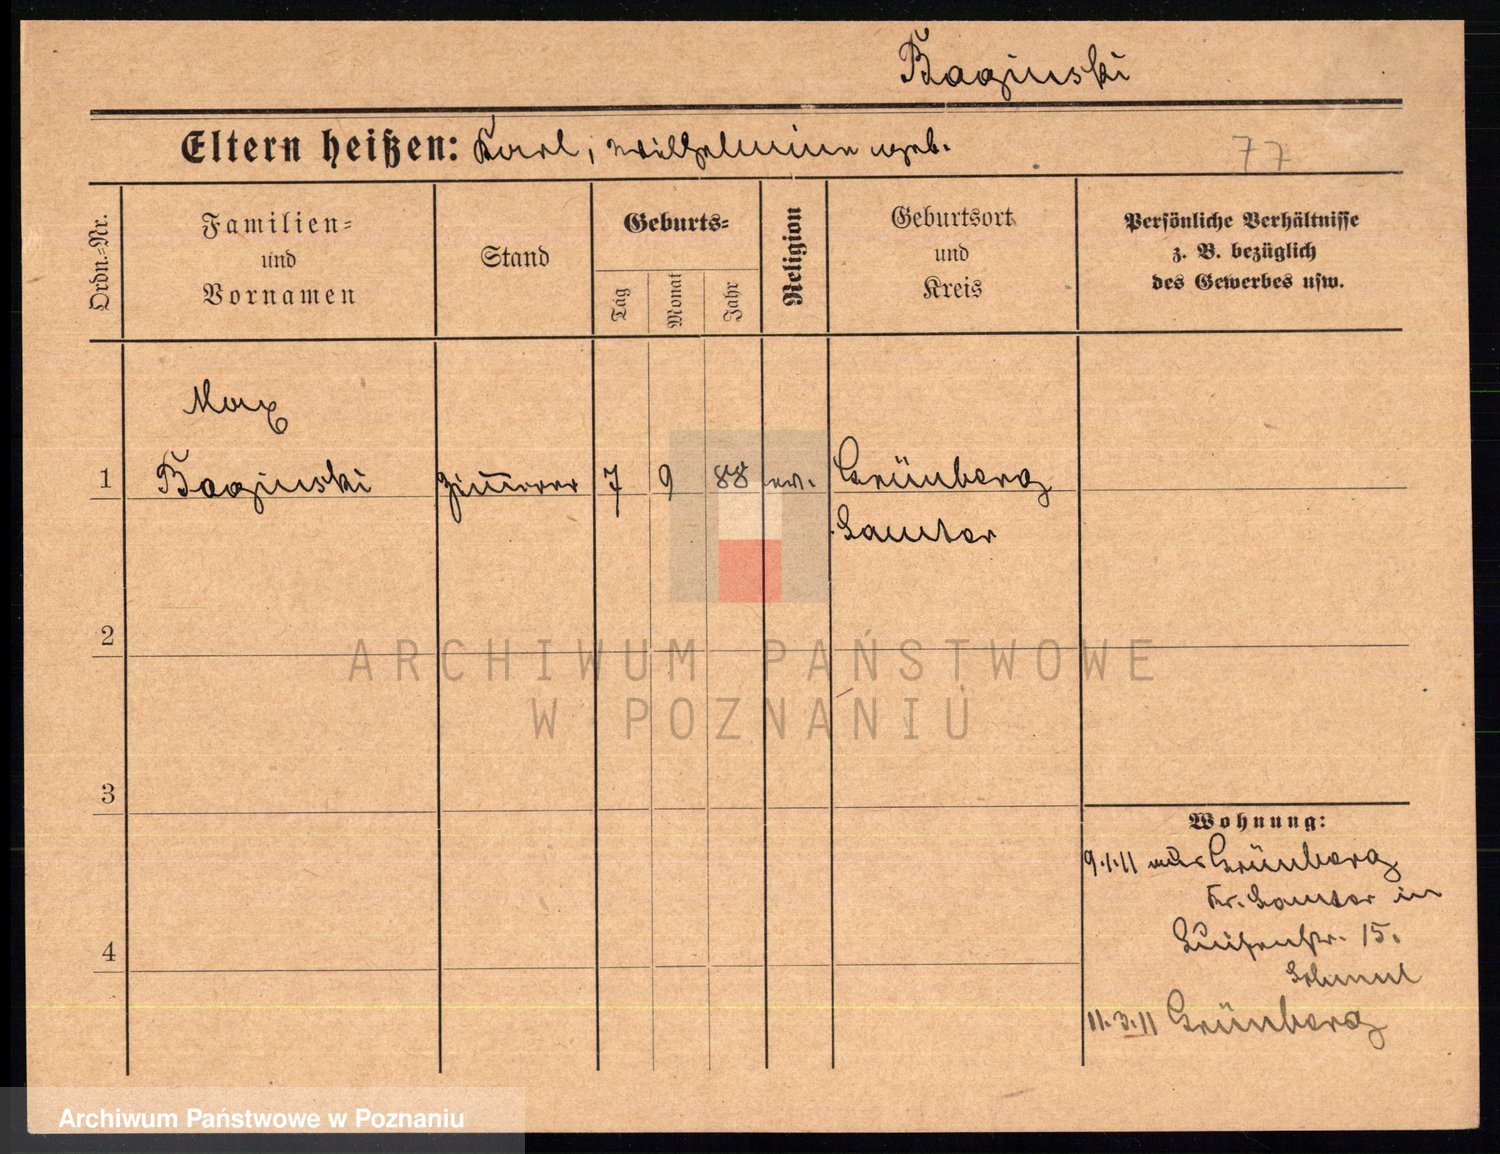 Baginski
Eltern heißen: Karl, Wilhelmine geb.
77
Ordn.-Nr.
Familien-
und
Vornamen
Stand
Geburts-
Tag
Monat
Jahr
Religion
Geburtsort
und
Kreis
Persönliche Verhältnisse
z. B. bezüglich
des Gewerbes usw.
Max
1 Baginski Zimmerer 7 9 88 ev. Grünberg
Samter
2
ARCHIWUM PAŃSTWOWE
W POZNANIU
3
Wohnung:
9.1.11 aus Grünberg
Kr. Samter in
Luisenstr. 15.
4
11.3.11 Grünberg
Archiwum Państwowe w Poznaniu